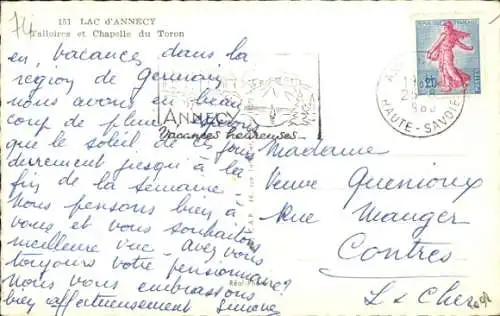 74
151 LAC d'ANNECY
Talloires et Chapelle du Toron
en, vacances dans la
région de Germain
nous avons eu beau
coup de pluie
que le soleil de ces jours
durement jusqu'à la
fin de la semaine.
Nous pensons bien à
vous et vous souhaitons
meilleure vue - avez vous
toujours votre pensionnaire?
Nous vous embrassons
bien affectueusement Simone
ANNECY
Vacances heureuses
REPUBLIQUE FRANÇAISE
0,20
HAUTE-SAVOIE
Madame
Veuve Quenioux
Rue Mauger
Contres
L & Cher